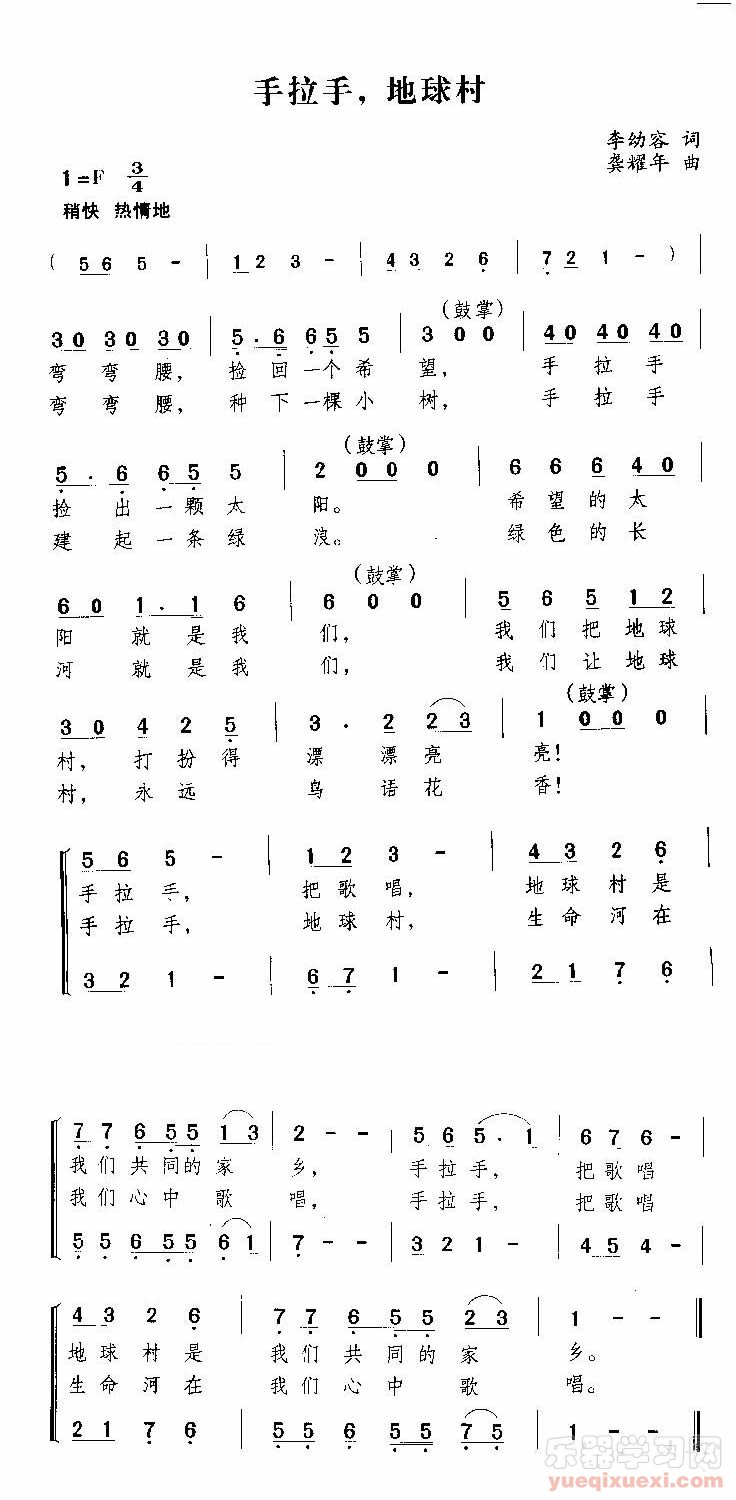 手拉手，地球村
李幼容 词
龚耀年 曲
1=F 3/4
稍快 热情地
( 5 6 5 - | 1 2 3 - | 4 3 2 6 | 7 2 1 - ) |
(鼓掌)
30 30 30 | 5 . 6 6 5 5 | 3 0 0 | 40 40 40 |
弯 弯 腰， 捡 回 一 个 希 望， 手 拉 手
弯 弯 腰， 种 下 一 棵 小 树， 手 拉 手
(鼓掌)
5 . 6 6 5 5 | 2 0 0 0 | 6 6 6 4 0 |
捡 出 一 颗 太 阳。 希 望 的 太
建 起 一 条 绿 浪。 绿 色 的 长
(鼓掌)
6 0 1 . 1 6 | 6 0 0 | 5 6 5 1 2 |
阳 就 是 我 们， 我 们 把 地 球
河 就 是 我 们， 我 们 让 地 球
(鼓掌)
3 0 4 2 5 | 3 . 2 2 3 | 1 0 0 0 |
村， 打 扮 得 漂 漂 亮 亮！
村， 永 远 鸟 语 花 香！
5 6 5 - | 1 2 3 - | 4 3 2 6 |
手 拉 手， 把 歌 唱， 地 球 村 是
手 拉 手， 地 球 村， 生 命 河 在
3 2 1 - | 6 7 1 - | 2 1 7 6 |
7 7 6 5 5 1 3 | 2 - - | 5 6 5 . 1 | 6 7 6 - |
我 们 共 同 的 家 乡， 手 拉 手， 把 歌 唱
我 们 心 中 歌 唱， 手 拉 手， 把 歌 唱
5 5 6 5 5 6 1 | 7 - - | 3 2 1 - | 4 5 4 - |
4 3 2 6 | 7 7 6 5 5 2 3 | 1 - - ‖
地 球 村 是 我 们 共 同 的 家 乡。
生 命 河 在 我 们 心 中 歌 唱。
2 1 7 6 | 5 5 6 5 5 7 5 | 1 - - ‖
乐器学习网
yueqixuexi.com